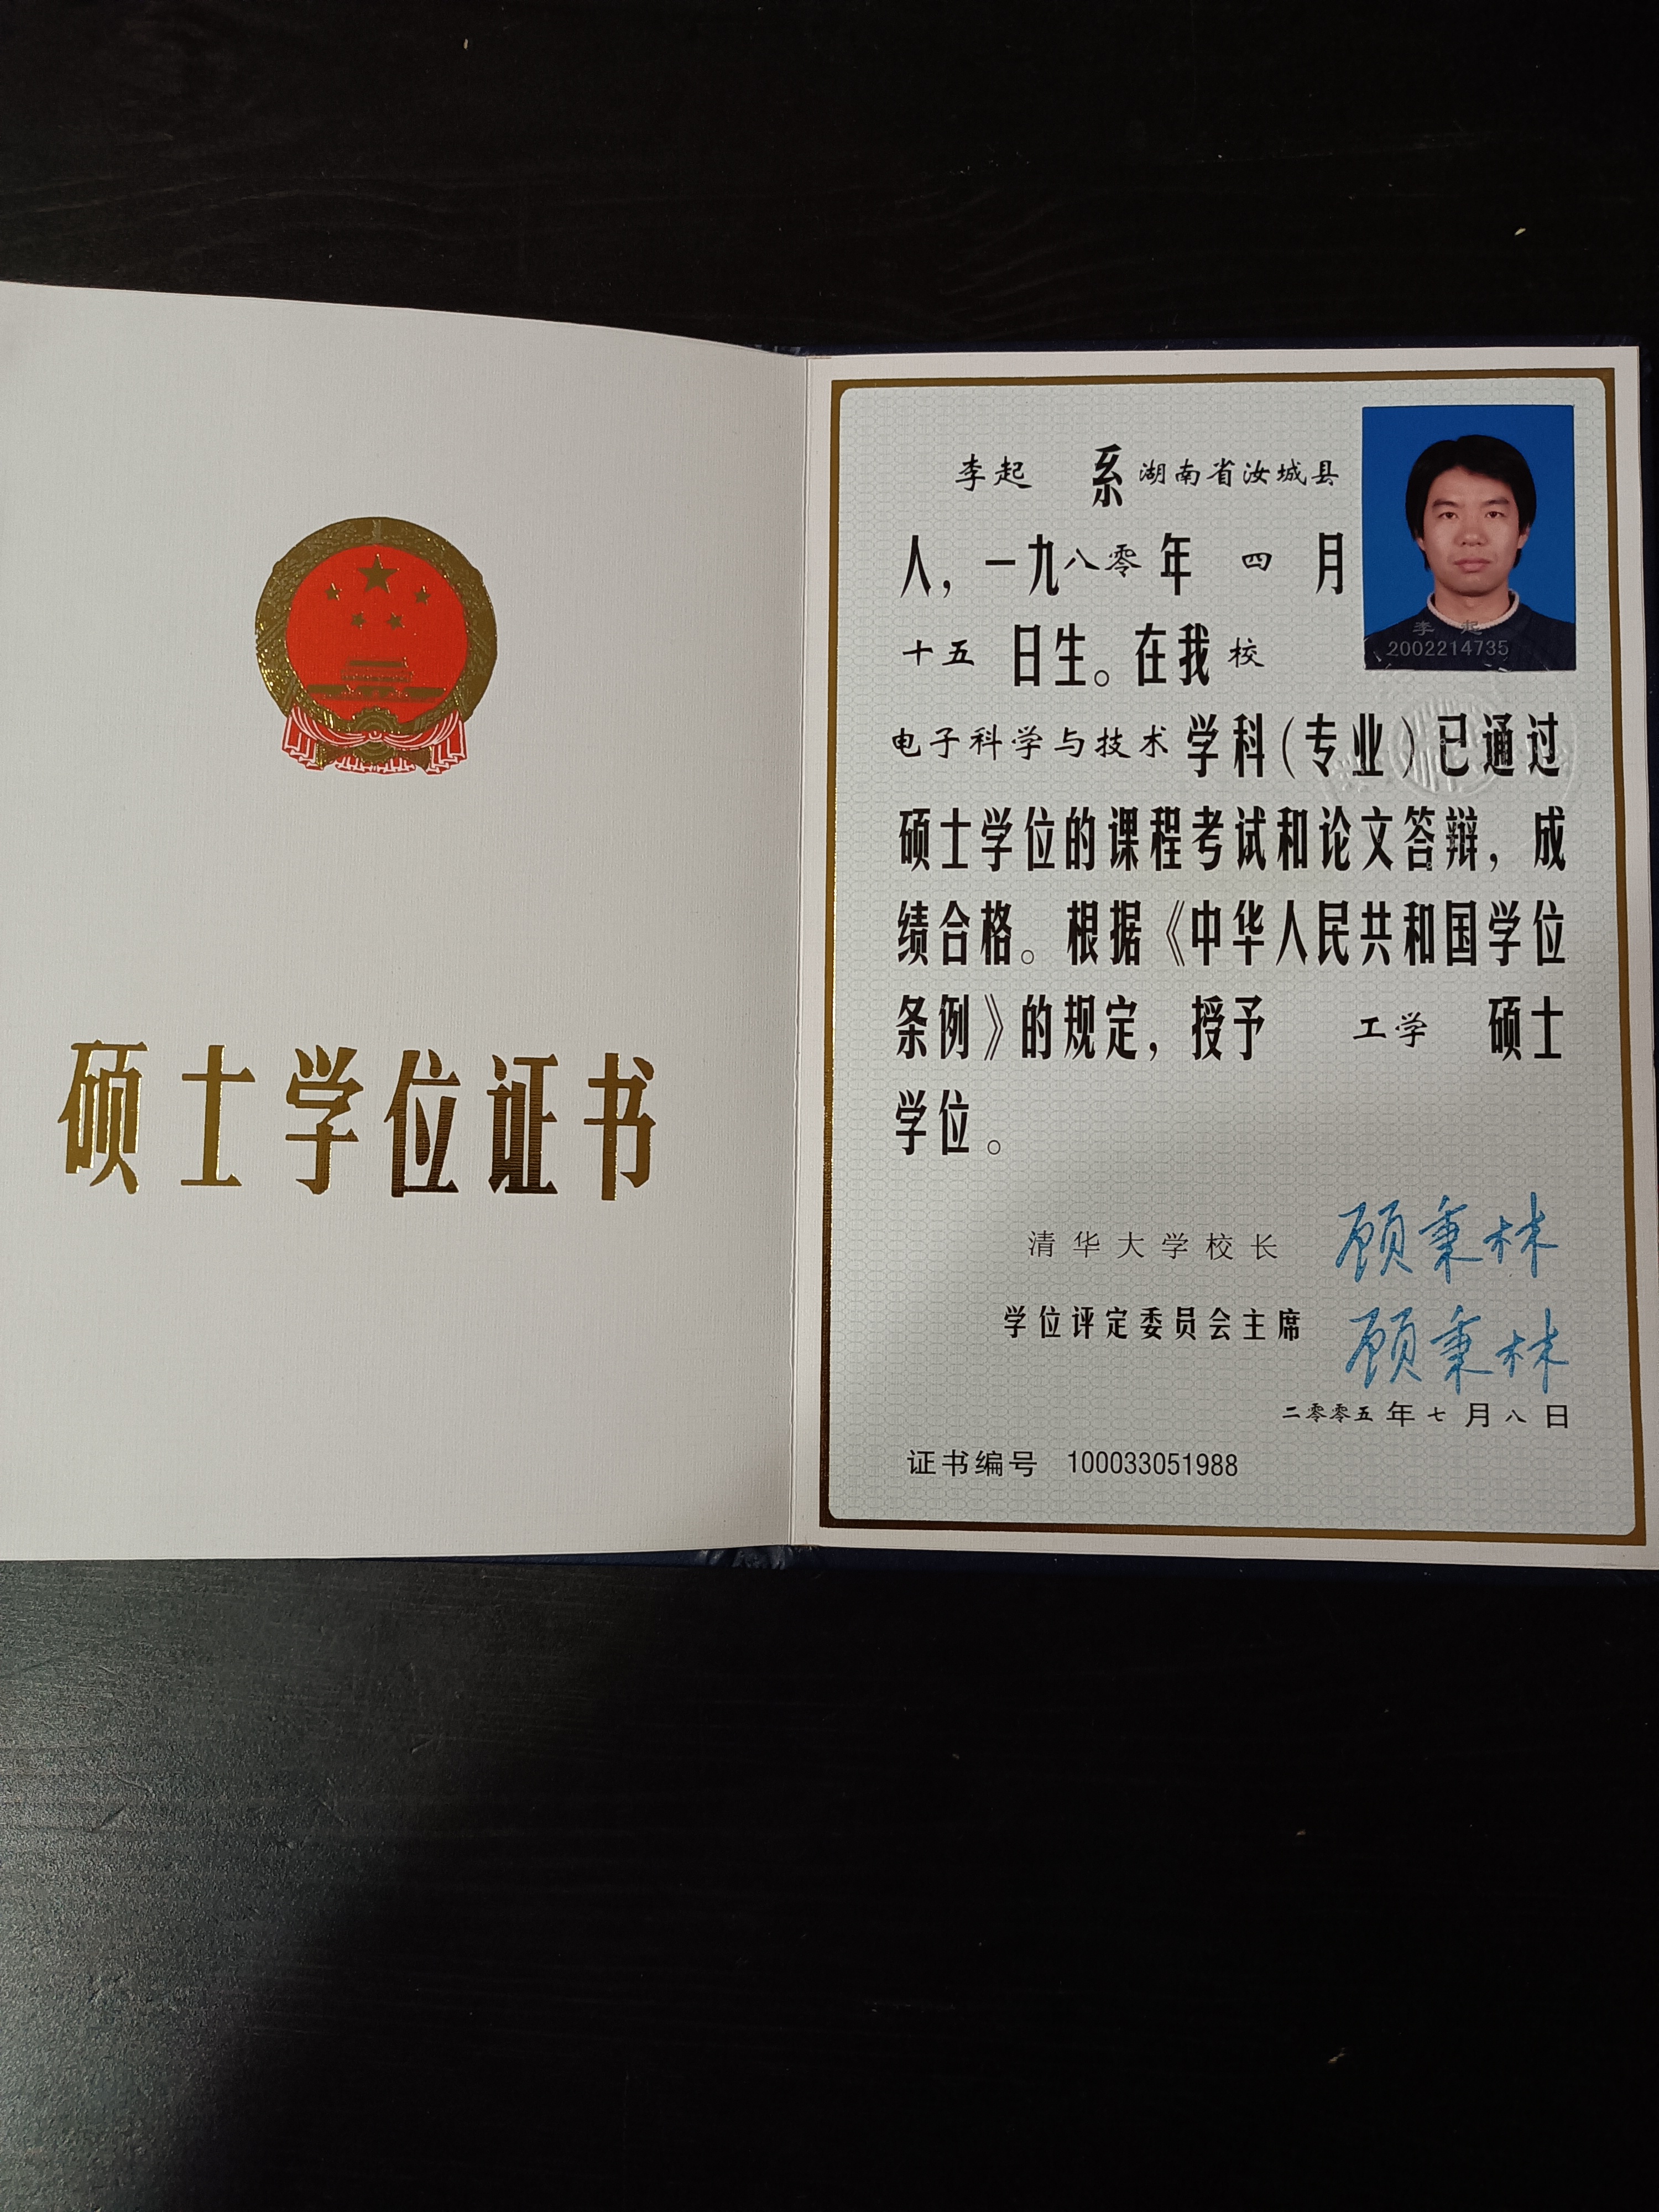 硕士学位证书
李起 系 湖南省汝城县
人，一九八零年 四 月
十五 日生。在我 校
电子科学与技术 学科（专业）已通过
硕士学位的课程考试和论文答辩，成
绩合格。根据《中华人民共和国学位
条例》的规定，授予 工学 硕士
学位。
李起
2002214735
清华大学校长 顾秉林
学位评定委员会主席 顾秉林
二零零五年七月八日
证书编号 100033051988